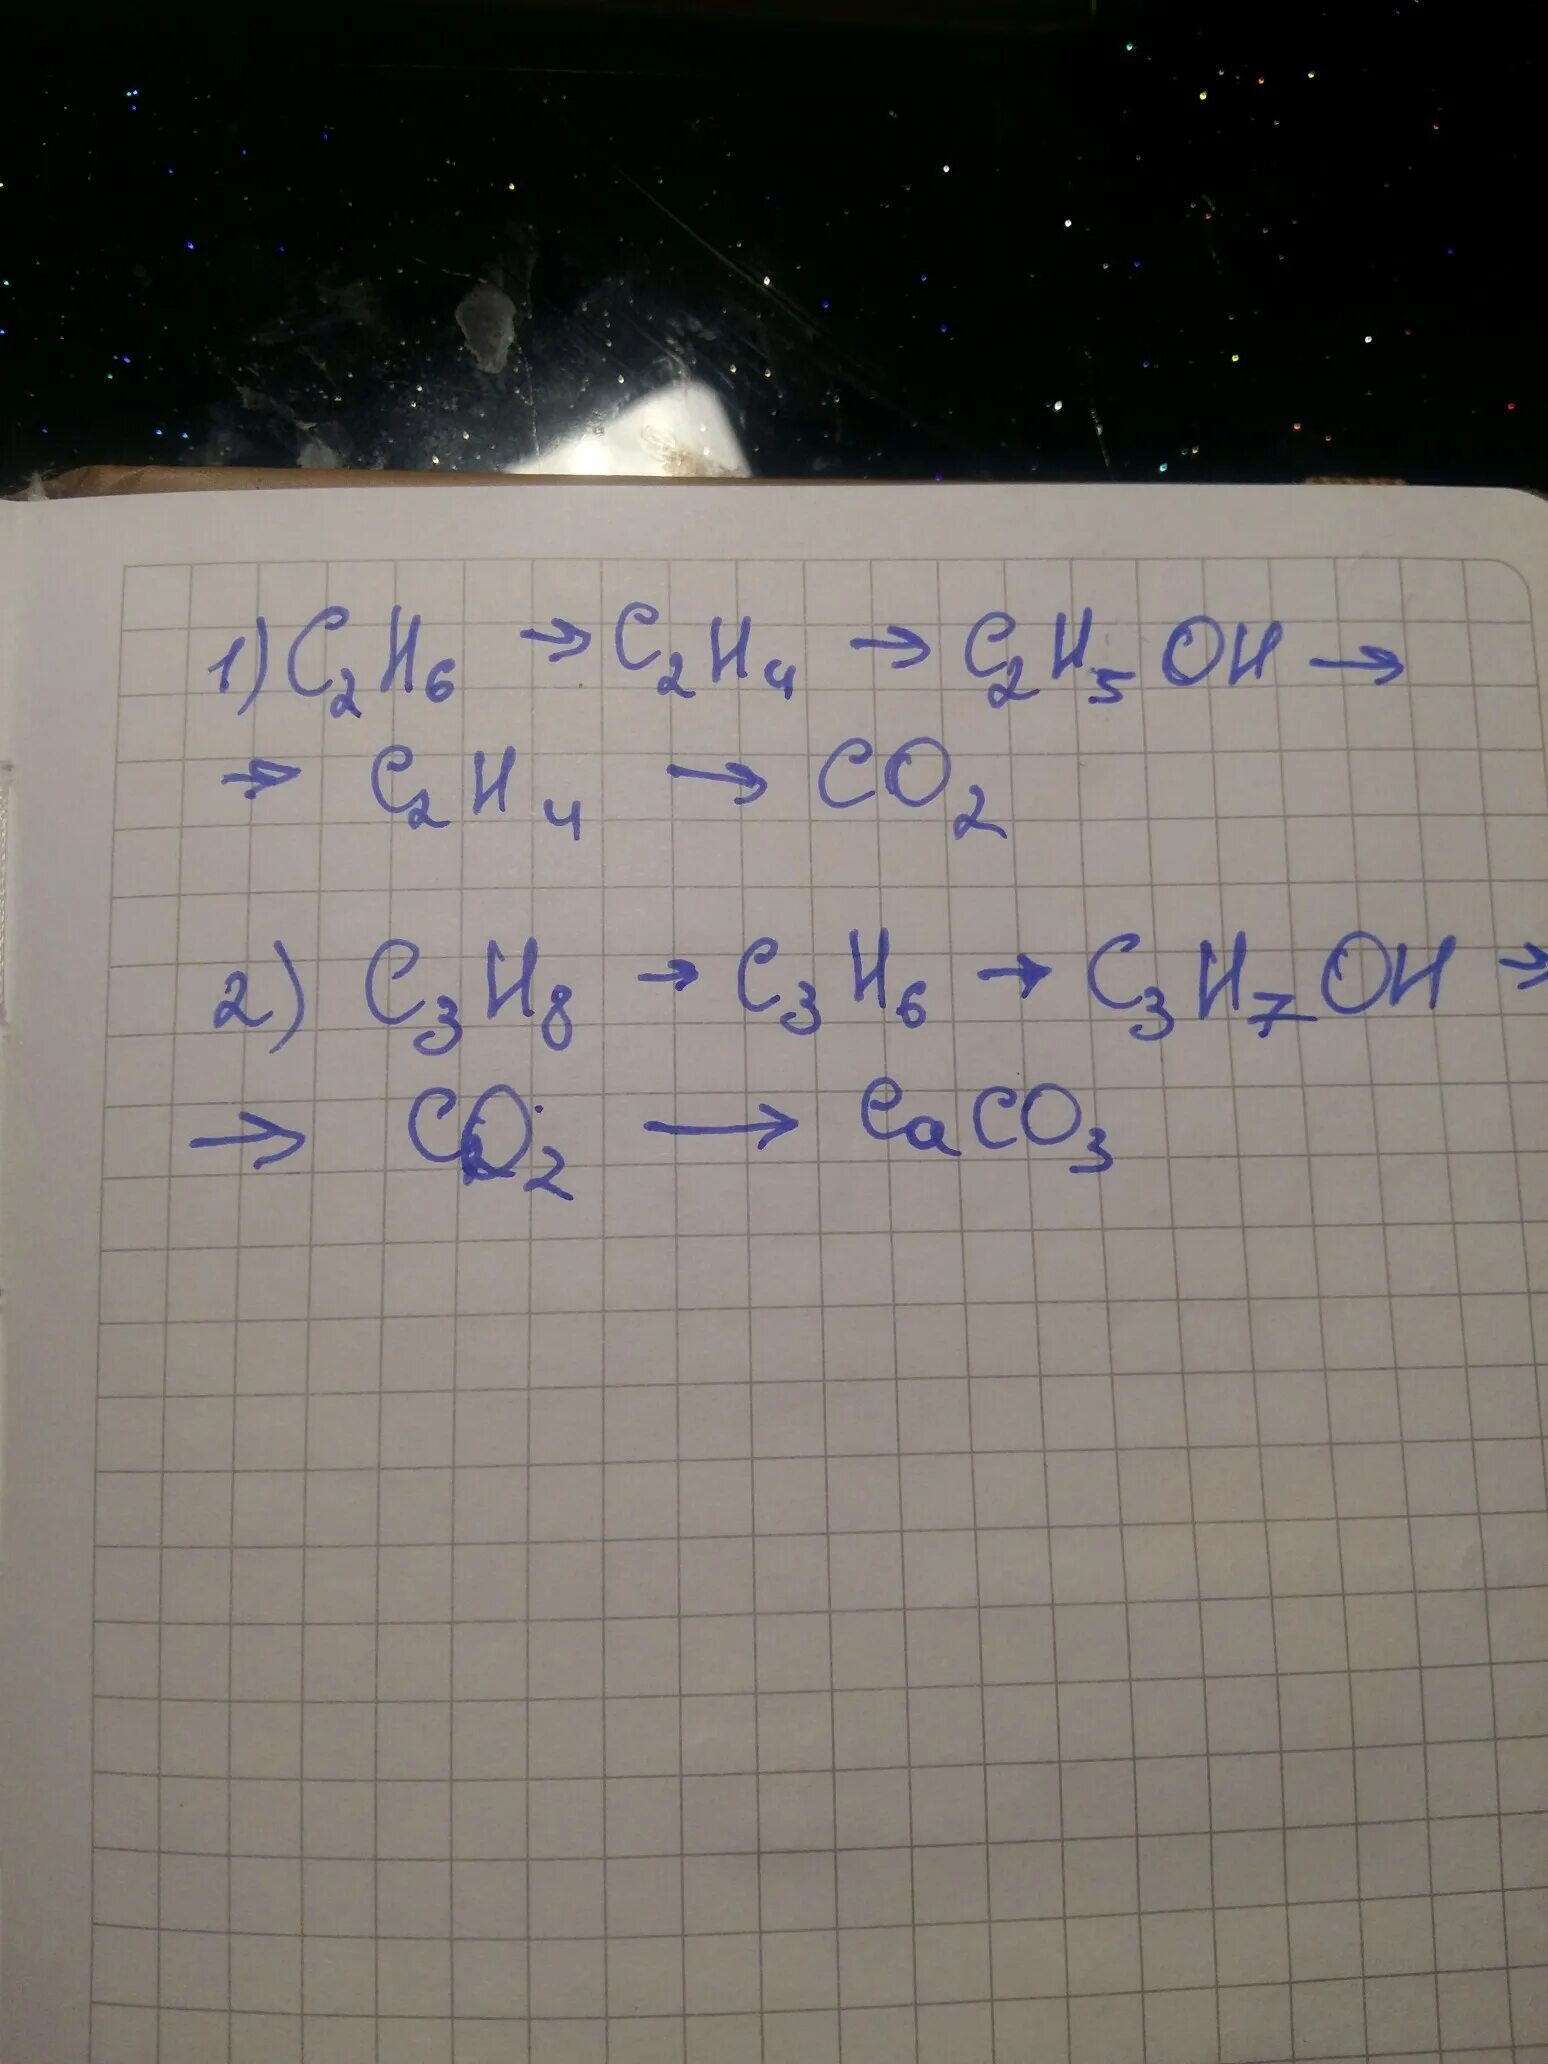 1) C₂H₆ → C₂H₄ → C₂H₅OH →
→ C₂H₄ → CO₂
2) C₃H₈ → C₃H₆ → C₃H₇OH →
→ CO₂ → CaCO₃